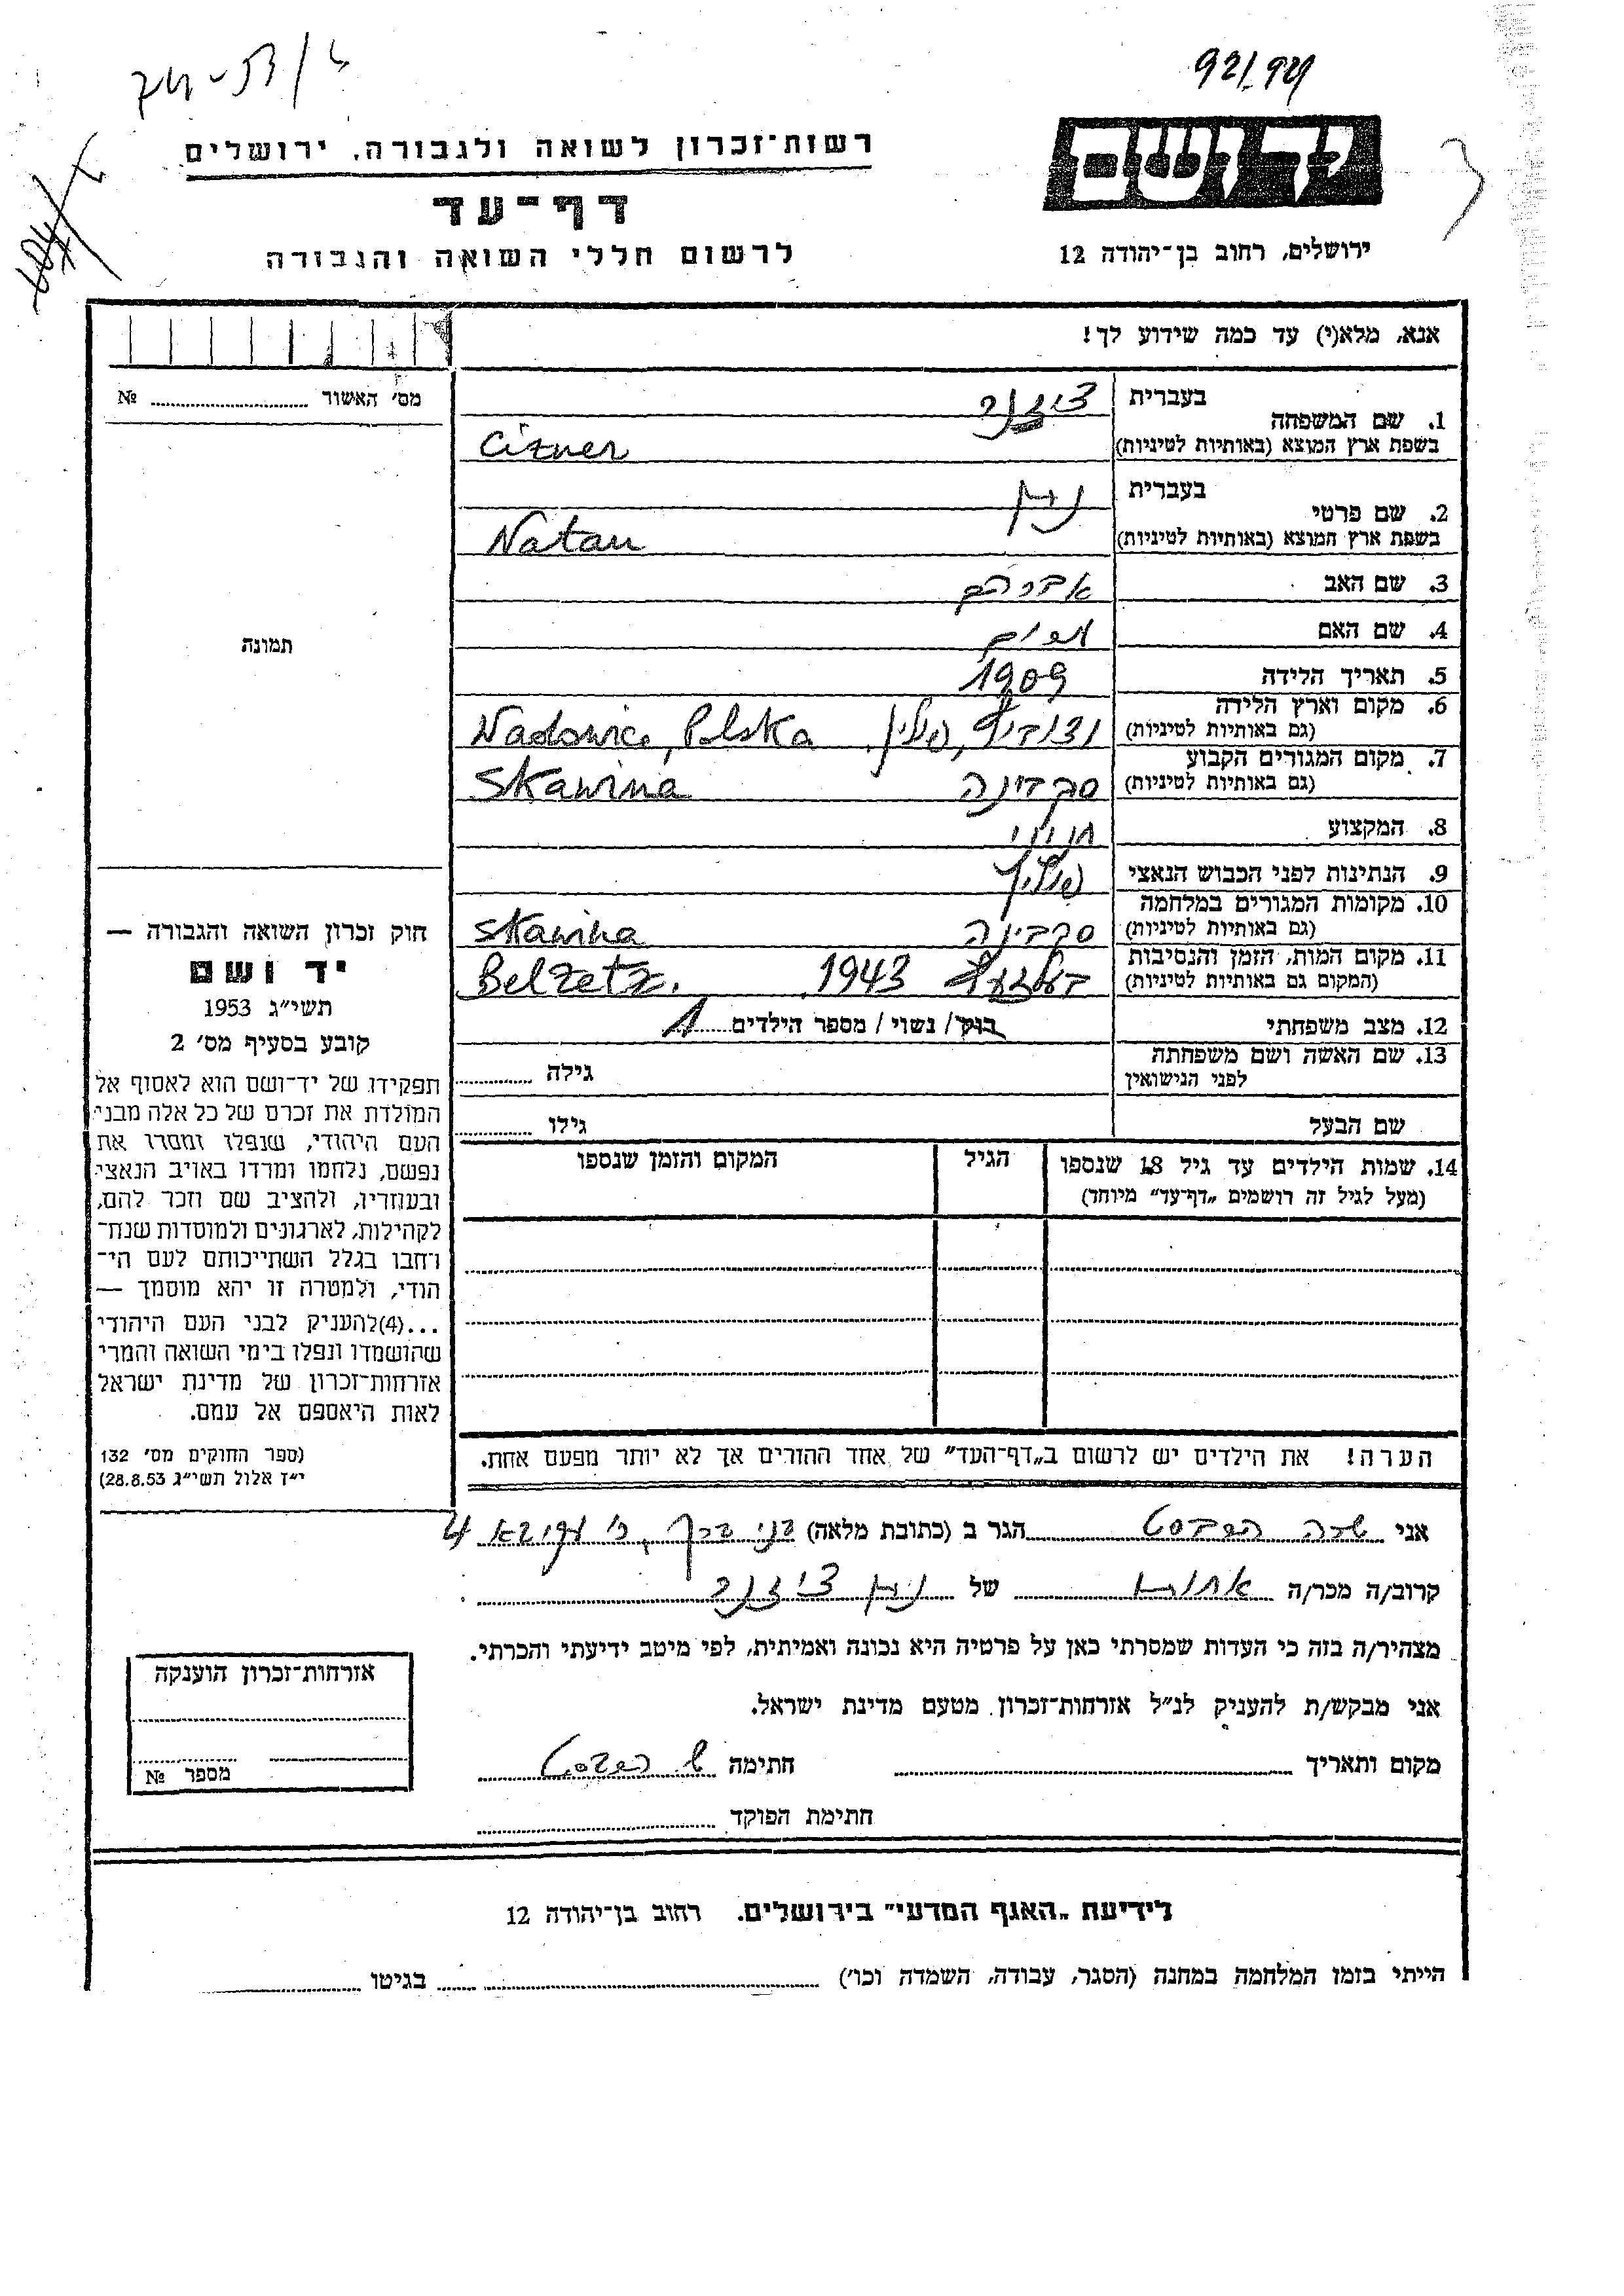 92/94
יד ושם
ירושלים, רחוב בן־יהודה 12
רשות־זכרון לשואה ולגבורה, ירושלים
דף־עד
לרשום חללי השואה והגבורה
אנא, מלא(י) עד כמה שידוע לך!
1. שם המשפחה
בעברית ציזנר
בשפת ארץ המוצא (באותיות לטיניות) Cizner
2. שם פרטי
בעברית נתן
בשפת ארץ המוצא (באותיות לטיניות) Natan
3. שם האב אברהם
4. שם האם מרים
5. תאריך הלידה 1909
6. מקום וארץ הלידה
(גם באותיות לטיניות) פולין Wadowice, Polska
7. מקום המגורים הקבוע
(גם באותיות לטיניות) סקבינה Skawina
8. המקצוע חנוני
9. הנתינות לפני הכבוש הנאצי פולין
10. מקומות המגורים במלחמה
(גם באותיות לטיניות) סקבינה Skawina
11. מקום המות, הזמן והנסיבות
(המקום גם באותיות לטיניות) בעלזעץ 1943 Belzetz.
12. מצב משפחתי רוק/ נשוי / מספר הילדים 1
13. שם האשה ושם משפחתה
לפני הנישואין גילה
שם הבעל גילו
14. שמות הילדים עד גיל 18 שנספו הגיל המקום והזמן שנספו
(מעל לגיל זה רושמים „דף־עד" מיוחד)
הערה! את הילדים יש לרשום ב„דף־העד" של אחד ההורים אך לא יותר מפעם אחת.
מס׳ האשור №
תמונה
חוק זכרון השואה והגבורה —
יד ושם
תשי״ג 1953
קובע בסעיף מס׳ 2
תפקידו של יד־ושם הוא לאסוף אל
המולדת את זכרם של כל אלה מבני
העם היהודי, שנפלו ומסרו את
נפשם, נלחמו ומרדו באויב הנאצי
ובעוזריו, ולהציב שם וזכר להם,
לקהילות, לארגונים ולמוסדות שנח־
רבו בגלל השתייכותם לעם הי־
הודי, ולמטרה זו יהא מוסמך —
...(4) להעניק לבני העם היהודי
שהושמדו ונפלו בימי השואה והמרי
אזרחות־זכרון של מדינת ישראל
לאות היאספם אל עמם.
(ספר החוקים מס׳ 132
י״ז אלול תשי״ג 28.8.53)
אני שרה הגר ב (כתובת מלאה) בני ברק, 4
קרוב/ה מכר/ה אחות של נתן ציזנר
מצהיר/ה בזה כי העדות שמסרתי כאן על פרטיה היא נכונה ואמיתית, לפי מיטב ידיעתי והכרתי.
אני מבקש/ת להעניק לנ״ל אזרחות־זכרון מטעם מדינת ישראל.
מקום ותאריך חתימה
חתימת הפוקד
אזרחות־זכרון הוענקה
מספר №
לידיעת „האגף המדעי" בירושלים, רחוב בן־יהודה 12
הייתי בזמן המלחמה במחנה (הסגר, עבודה, השמדה וכו׳) בגיטו